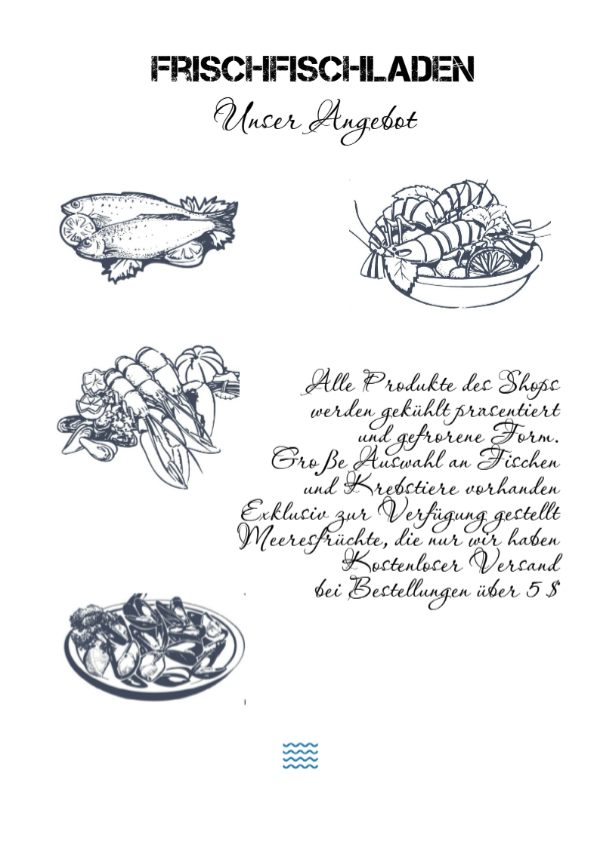 FRISCHFISCHLADEN
Unser Angebot
Alle Produkte des Shops
werden gekühlt prasentiert
und gefrorene Form.
Große Auswahl an Fischen
und Krebstiere vorhanden
Exklusiv zur Verfügung gestellt
Meeresfrüchte, die nur wir haben
Kostenloser Versand
bei Bestellungen über 5 $